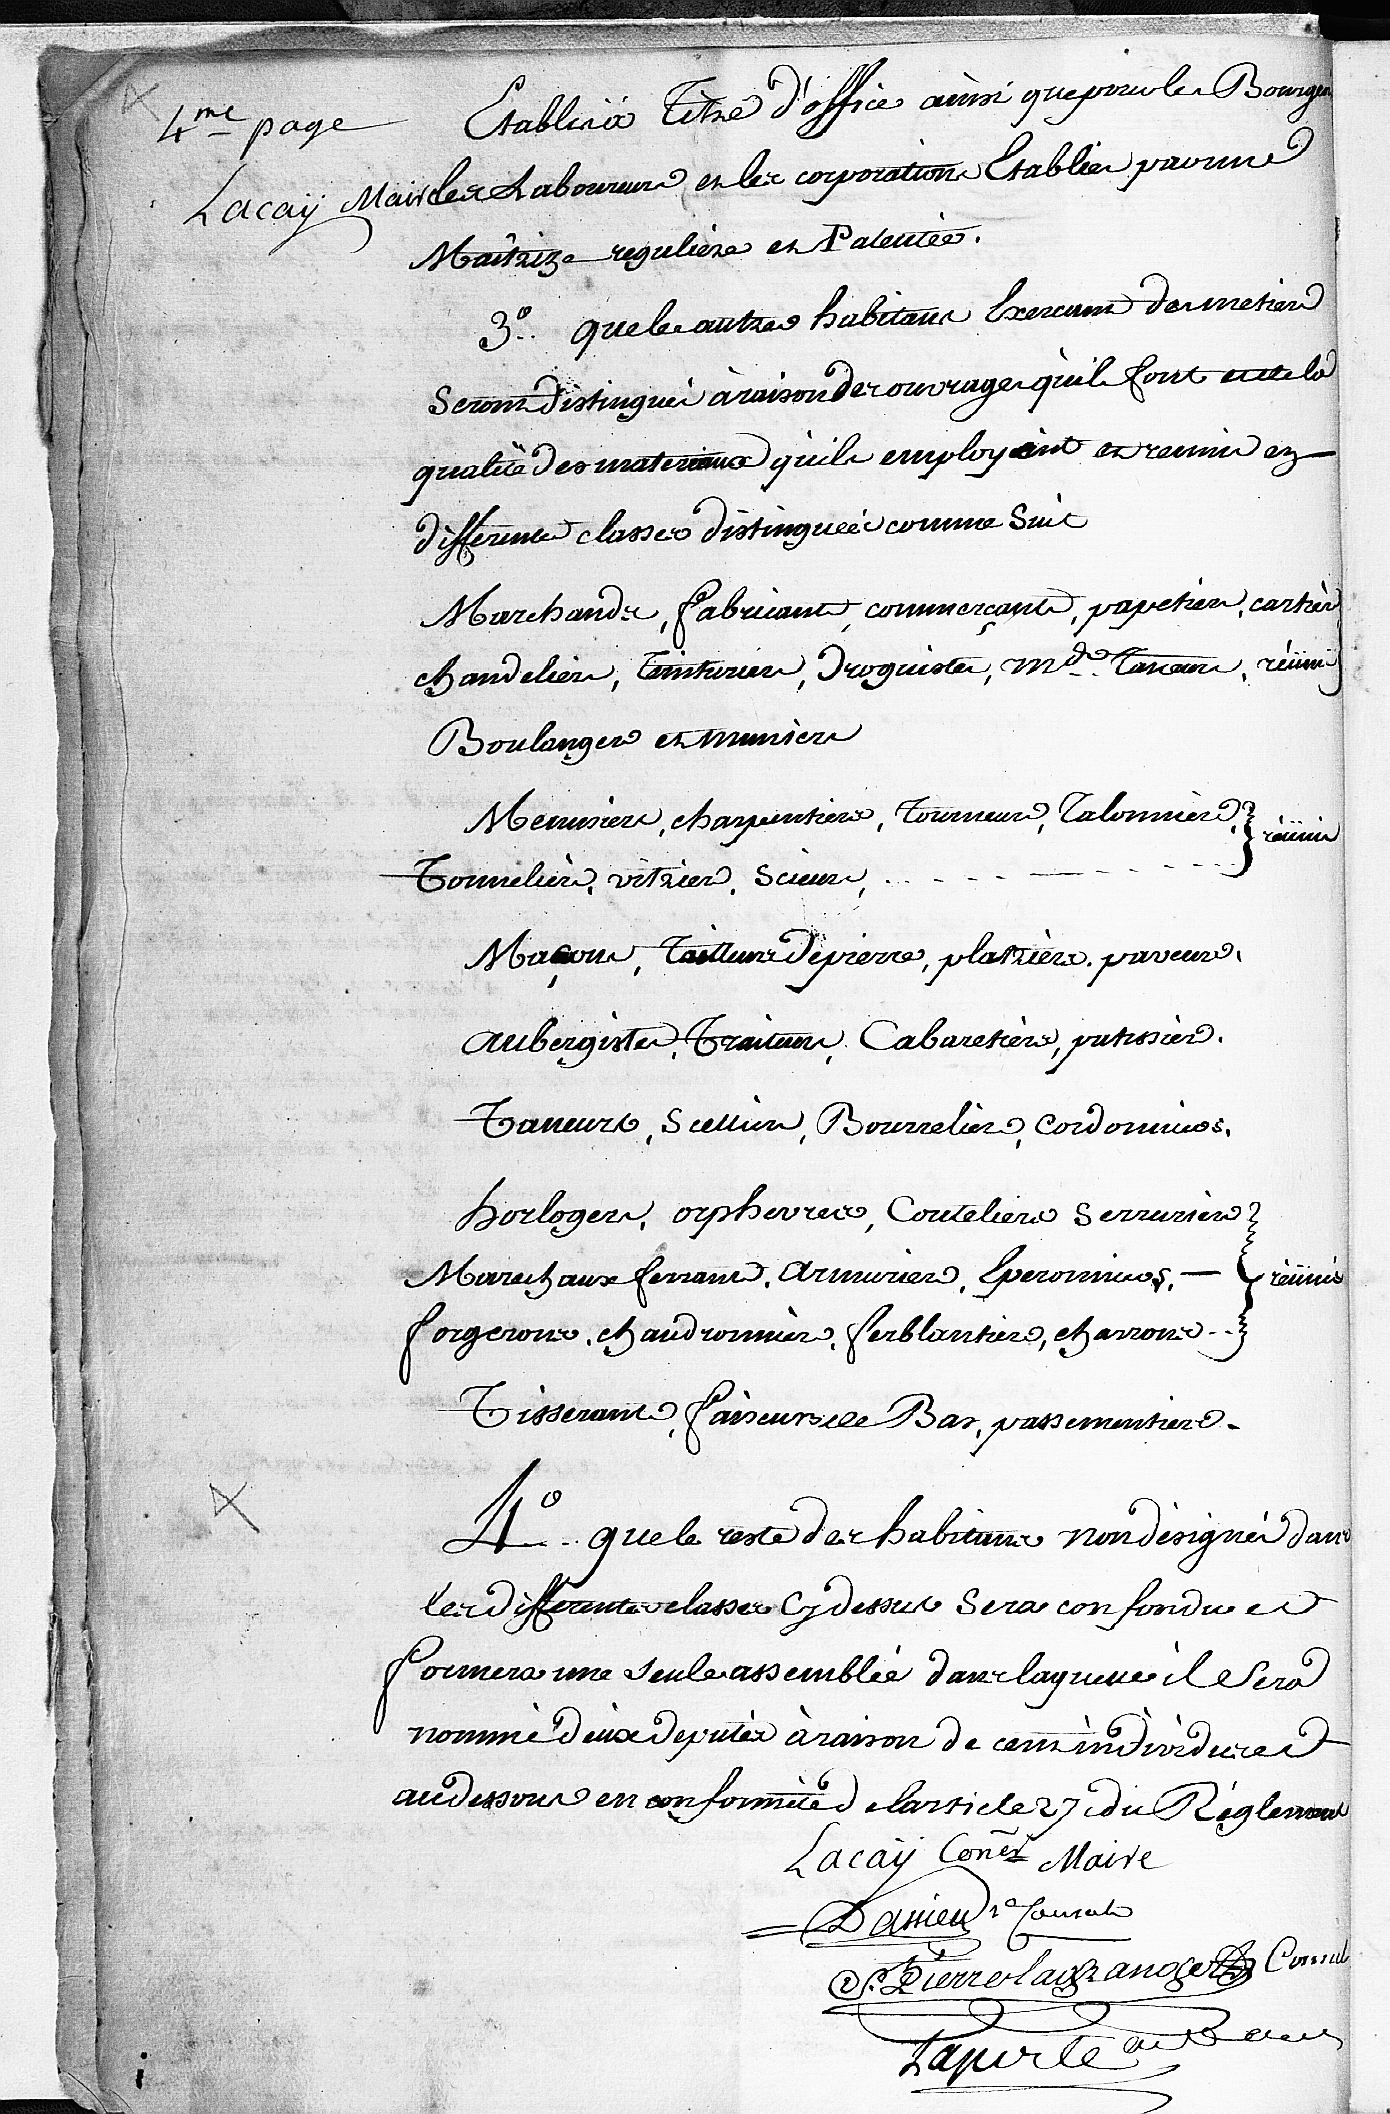 4me page
Lacaÿ Maire
Etablis à Titre d'office ainsi que pour les Bourgeois
les Laboureurs et les corporations Etablies par une
Maîtrize reguliere et Patentée.
3o. que les autres habitans Exercant des metiers
Seront distingués à raison des ouvrages qu'ils font et de la
qualité des materiaux qu'ils employent et reunis en
differentes classes distinguées comme Suit
Marchands, fabricants, commerçants, papetiers, cartiers
chandeliers, Teinturiers, Droguistes, mds. Taneurs, réünis
Boulangers et muniers
Menuisiers, charpentiers, Tourneurs, Talonniers,
Tonneliers, vitriers, Scieurs, réünis
Maçons, Tailleurs de pierre, platriers, paveurs.
aubergistes, Traiteurs, Cabaretiers, patissiers.
Taneurs, Scelliers, Bourreliers, Cordonniers.
horlogers, orphevres, Couteliers Serruriers
Marechaux ferrants, armuriers, Eperonniers, réünis
forgerons, chaudronniers, ferblantiers, charrons
Tisserants, faiseurs de Bas, passementiers.
4o que le reste des habitans non désignés dans
les differentes classes Cy dessus Sera confondu et
formera une Seule assemblée dans laquelle il Sera
nommé deux deputés à raison de cent individus et
au dessous en conformité de l'article 27 du Réglement
Lacaÿ Coner Maire
Dassieu 1er Consul
St. Pierre lagrange Consul
Laporte